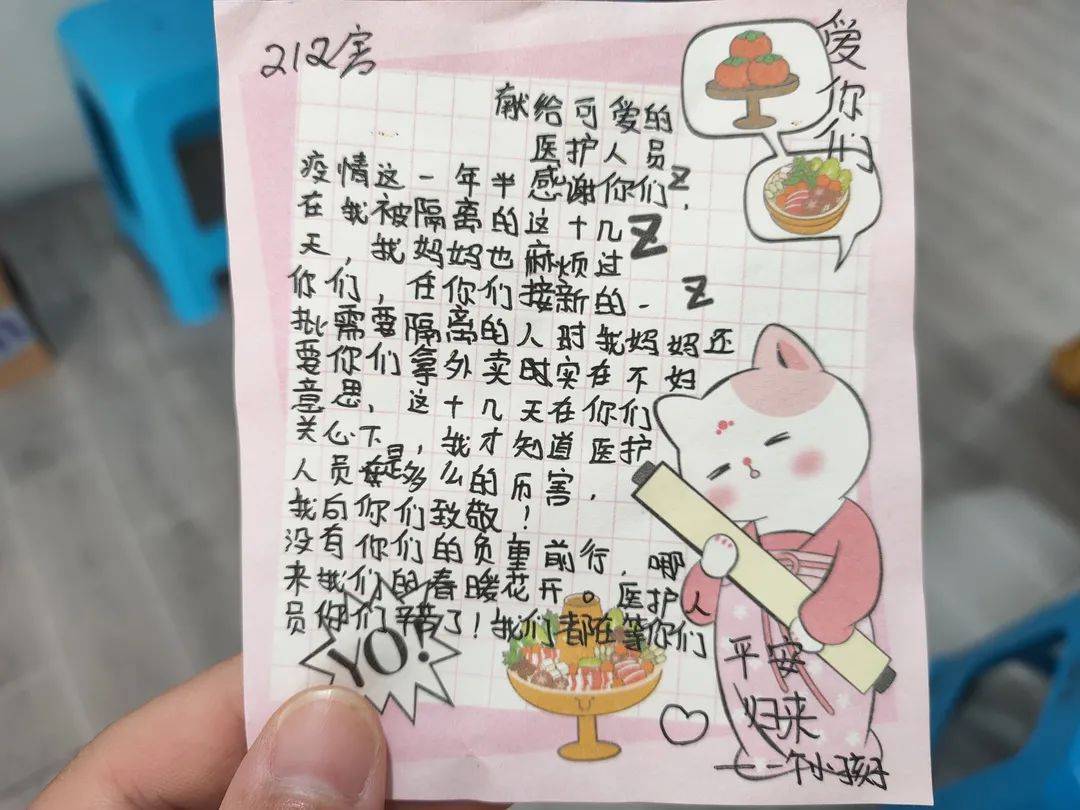 212害
献给可爱的
医护人员
疫情这一年半感谢你们，
在我被隔离的这十几
天，我妈妈也麻烦过
你们，在你们接新的一
批需要隔离的人时我妈妈还
要你们拿外卖时实在不好
意思，这十几天在你们
关心下，我才知道医护
人员是多么的历害，
我向你们致敬！
没有你们的负重前行，哪
来我们的春暖花开。医护人
员你们辛苦了！我们都在等你们
平安
归来
——一个小孩子
爱你们
Z
Z
Z
YO!